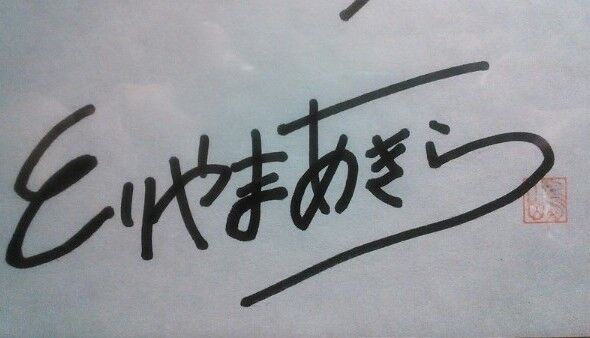 とりやまあきら